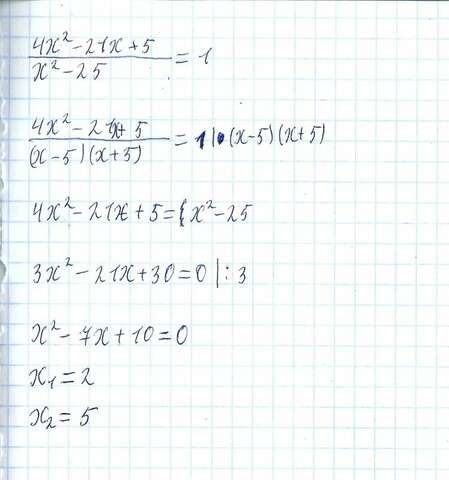 4x² - 21x + 5 / x² - 25 = 1
4x² - 21x + 5 / (x - 5)(x + 5) = 1 | · (x - 5)(x + 5)
4x² - 21x + 5 = x² - 25
3x² - 21x + 30 = 0 | : 3
x² - 7x + 10 = 0
x₁ = 2
x₂ = 5